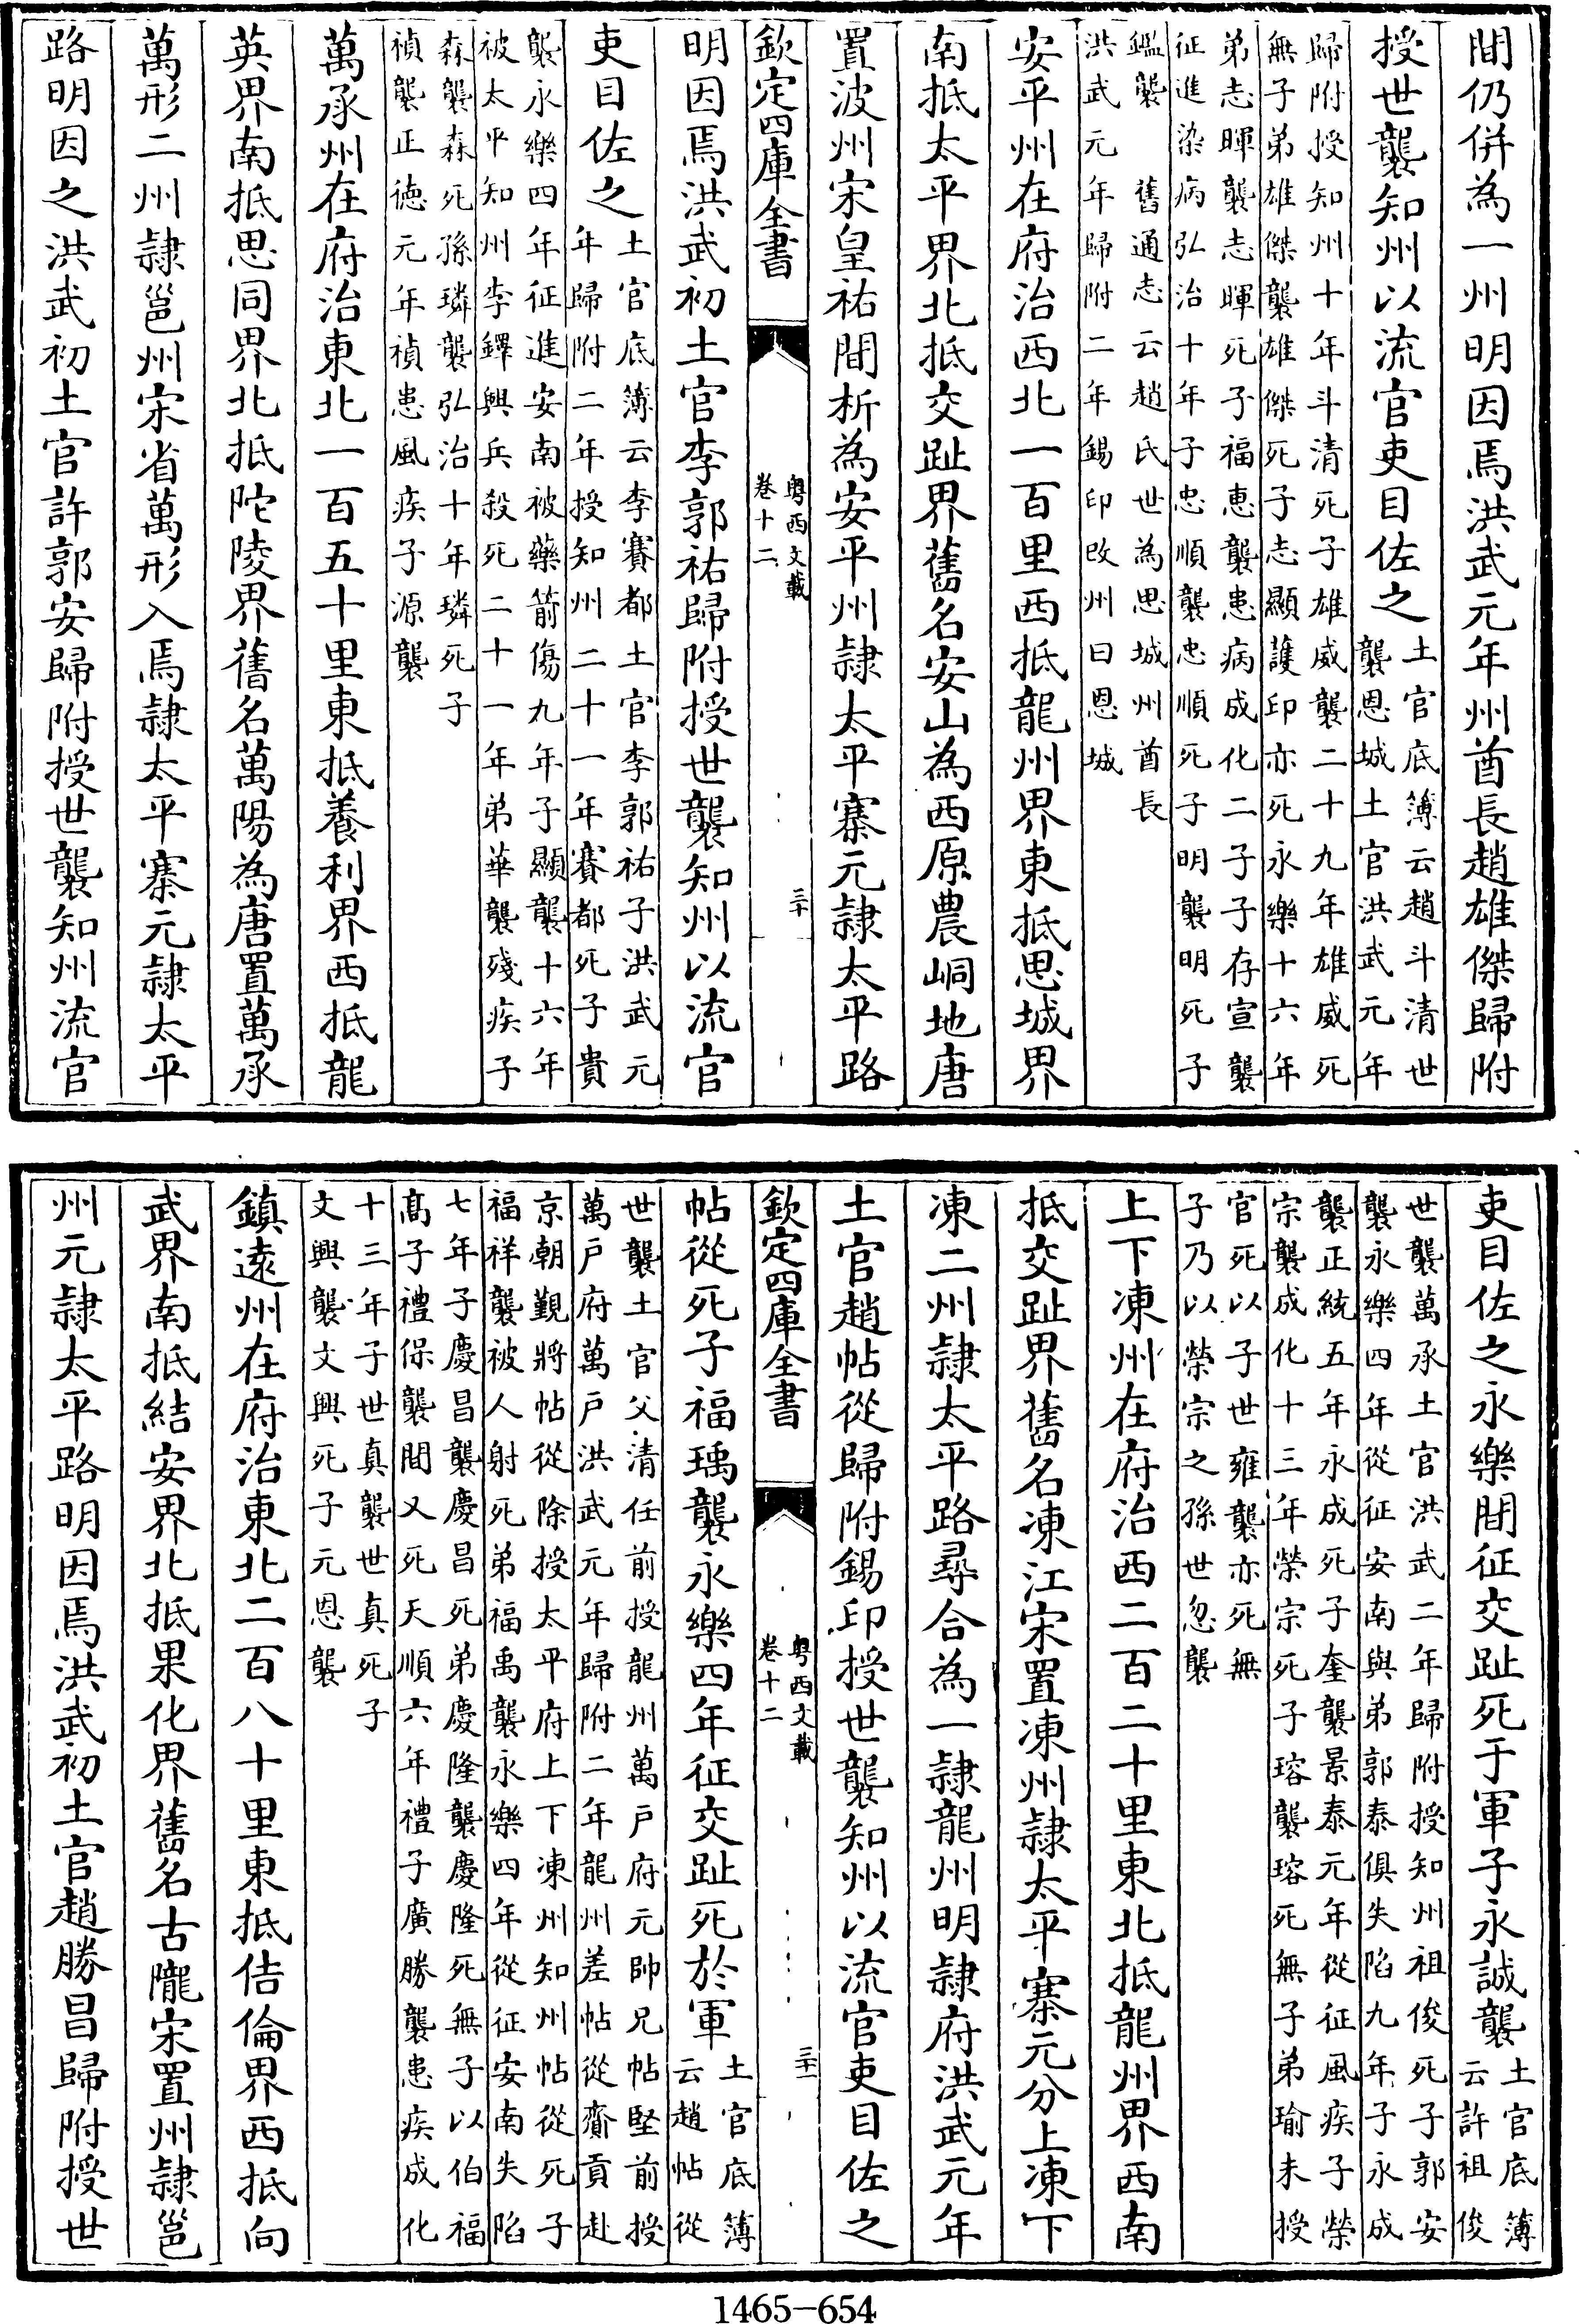 間仍併為一州明因焉洪武元年州酋長趙雄傑歸附
授世襲知州以流官吏目佐之
土官底簿云趙斗清世
襲恩城土官洪武元年
歸附授知州十年斗清死子雄威襲二十九年雄威死
無子弟雄傑襲雄傑死子志顯護印亦死永樂十六年
弟志暉襲志暉死子福惠襲患病成化二子子存宣襲
征進染病弘治十年子忠順襲忠順死子明襲明死子
鑑襲 舊通志云趙氏世為思城州酋長
洪武元年歸附二年錫印改州曰恩城
安平州在府治西北一百里西抵龍州界東抵思城界
南抵太平界北抵交趾界舊名安山為西原農峒地唐
置波州宋皇祐間析為安平州隸太平寨元隸太平路
欽定四庫全書
粤西文載
卷十二
三十
明因焉洪武初土官李郭祐歸附授世襲知州以流官
吏目佐之
土官底簿云李賽都土官李郭祐子洪武元
年歸附二年授知州二十一年賽都死子貴
襲永樂四年征進安南被藥箭傷九年子顯襲十六年
被太平知州李鐸興兵殺死二十一年弟華襲殘疾子
森襲森死孫璘襲弘治十年璘死子
禎襲正德元年禎患風疾子源襲
萬承州在府治東北一百五十里東抵養利界西抵龍
英界南抵思同界北抵陀陵界舊名萬陽為唐置萬承
萬形二州隸邕州宋省萬形入焉隸太平寨元隸太平
路明因之洪武初土官許郭安歸附授世襲知州流官
吏目佐之永樂間征交趾死于軍子永誠襲
土官底簿
云許祖俊
世襲萬承土官洪武二年歸附授知州祖俊死子郭安
襲永樂四年從征安南與弟郭泰俱失陷九年子永成
襲正統五年永成死子奎襲景泰元年從征風疾子榮
宗襲成化十三年榮宗死子瑢襲瑢死無子弟瑜未授
官死以子世雍襲亦死無
子乃以榮宗之孫世忽襲
上下凍州在府治西二百二十里東北抵龍州界西南
抵交趾界舊名凍江宋置凍州隸太平寨元分上凍下
凍二州隸太平路尋合為一隸龍州明隸府洪武元年
土官趙帖從歸附錫印授世襲知州以流官吏目佐之
欽定四庫全書
粤西文載
卷十二
三十一
帖從死子福瑀襲永樂四年征交趾死於軍
土官底簿
云趙帖從
世襲土官父清任前授龍州萬戶府元帥兄帖堅前授
萬戶府萬戶洪武元年歸附二年龍州差帖從齎貢赴
京朝覲將帖從除授太平府上下凍州知州帖從死子
福祥襲被人射死弟福禹襲永樂四年從征安南失陷
七年子慶昌襲慶昌死弟慶隆襲慶隆死無子以伯福
高子禮保襲間又死天順六年禮子廣勝襲患疾成化
十三年子世真襲世真死子
文興襲文興死子元恩襲
鎮遠州在府治東北二百八十里東抵佶倫界西抵向
武界南抵結安界北抵果化界舊名古隴宋置州隸邕
州元隸太平路明因焉洪武初土官趙勝昌歸附授世
1465-654